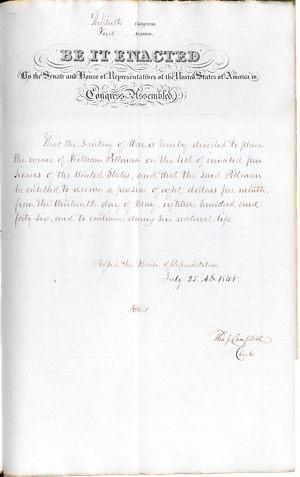 Thirtieth Congress,
First Session.
BE IT ENACTED
By the Senate and House of Representatives of the United States of America in
Congress Assembled,
That the Secretary of War is hereby directed to place
the name of William Pittman on the list of invalid pen-
sioners of the United States, and that the said Pittman
be entitled to receive a pension of eight dollars per month
from the thirteenth day of May, eighteen hundred and
forty six, and to continue during his natural life.
Passed the House of Representatives
July 25, AD 1848.
Attest
Tho. J. Campbell
Clerk